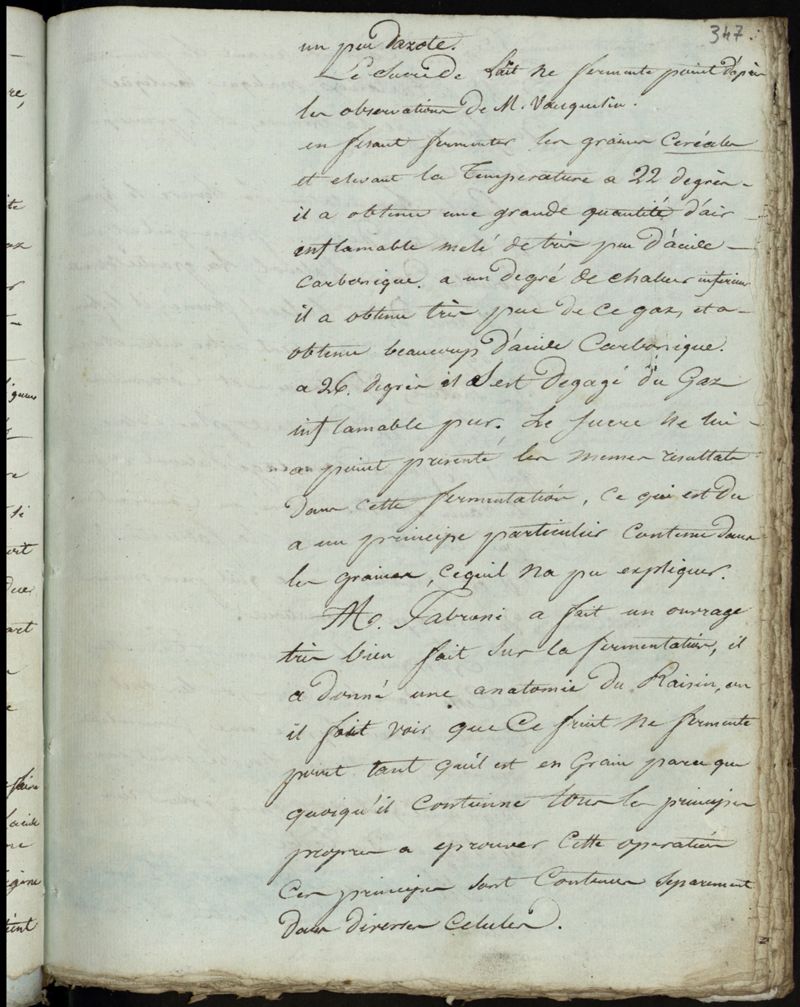 347.
un peu dazote.
Le Sucre de Lait ne fermente point d'après
les observations de M. Vauquelin.
en fesant fermenter les graines Ceréales
et elevant la Temperature a 22 degrès -
il a obtenu une grande quantité d'air
inflamable melé de très peu d'acide -
carbonique. a un degré de chaleur inferieur
il a obtenu très peu de ce gaz, et a -
obtenu beaucoup d'acide Carbonique.
a 26. degrès il s'est Degagé du Gaz
inflamable pur. Le sucre ne lui -
a point presenté les memes resultats
Dans cette fermentation, ce qui est Du
a un principe particulier Contenu dans
les graines, cequil Na pu expliquer.
M. Fabroni a fait un ouvrage
très bien fait sur la fermentation, il
a donné une anatomie du Raisin, ou
il fait voir que Ce fruit ne fermente
point tant qu'il est en Grain parce que
quoiqu'il Contienne tous les principes
propres a eprouver Cette operation
Ces principes sont Contenus Separement
Dans diverses Celules.